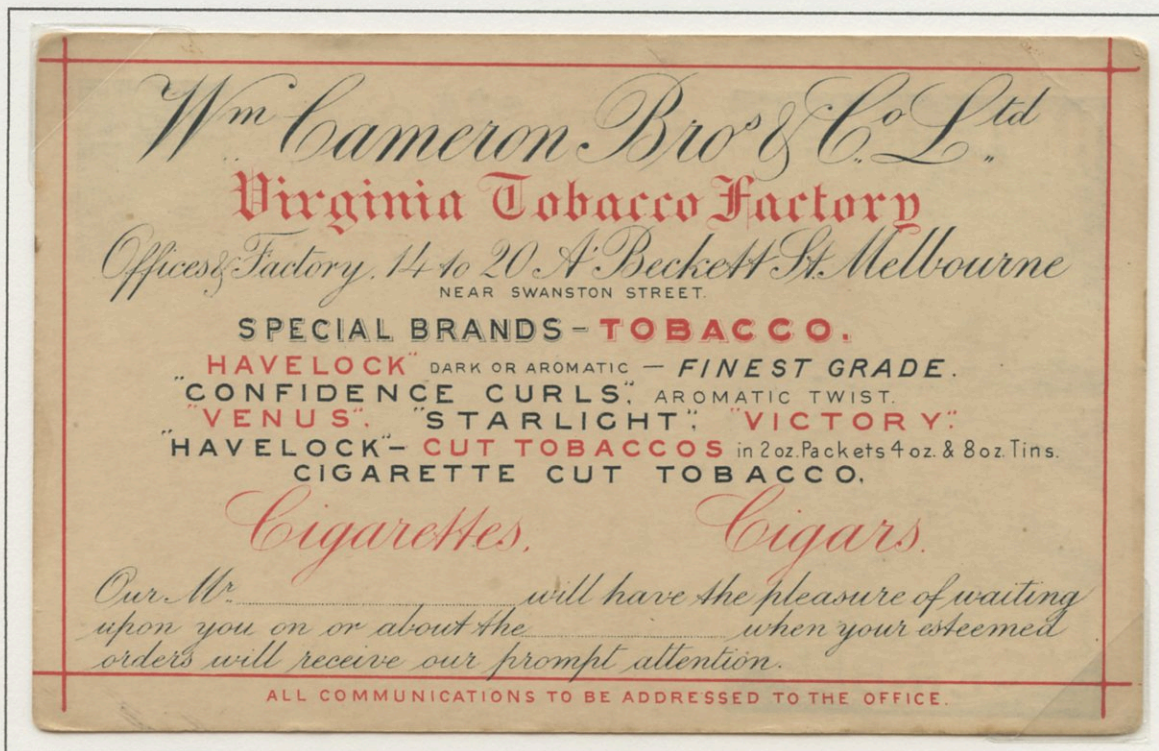 Wm Cameron Bros & Co. Ltd
Virginia Tobacco Factory
Offices & Factory, 14 to 20 A'Beckett St. Melbourne
NEAR SWANSTON STREET.
SPECIAL BRANDS – TOBACCO.
HAVELOCK" DARK OR AROMATIC — FINEST GRADE.
"CONFIDENCE CURLS", AROMATIC TWIST.
"VENUS". "STARLIGHT". "VICTORY".
"HAVELOCK" – CUT TOBACCOS in 2 oz. Packets 4 oz. & 8 oz. Tins.
CIGARETTE CUT TOBACCO.
Cigarettes. Cigars.
Our Mr. will have the pleasure of waiting
upon you on or about the when your esteemed
orders will receive our prompt attention.
ALL COMMUNICATIONS TO BE ADDRESSED TO THE OFFICE.